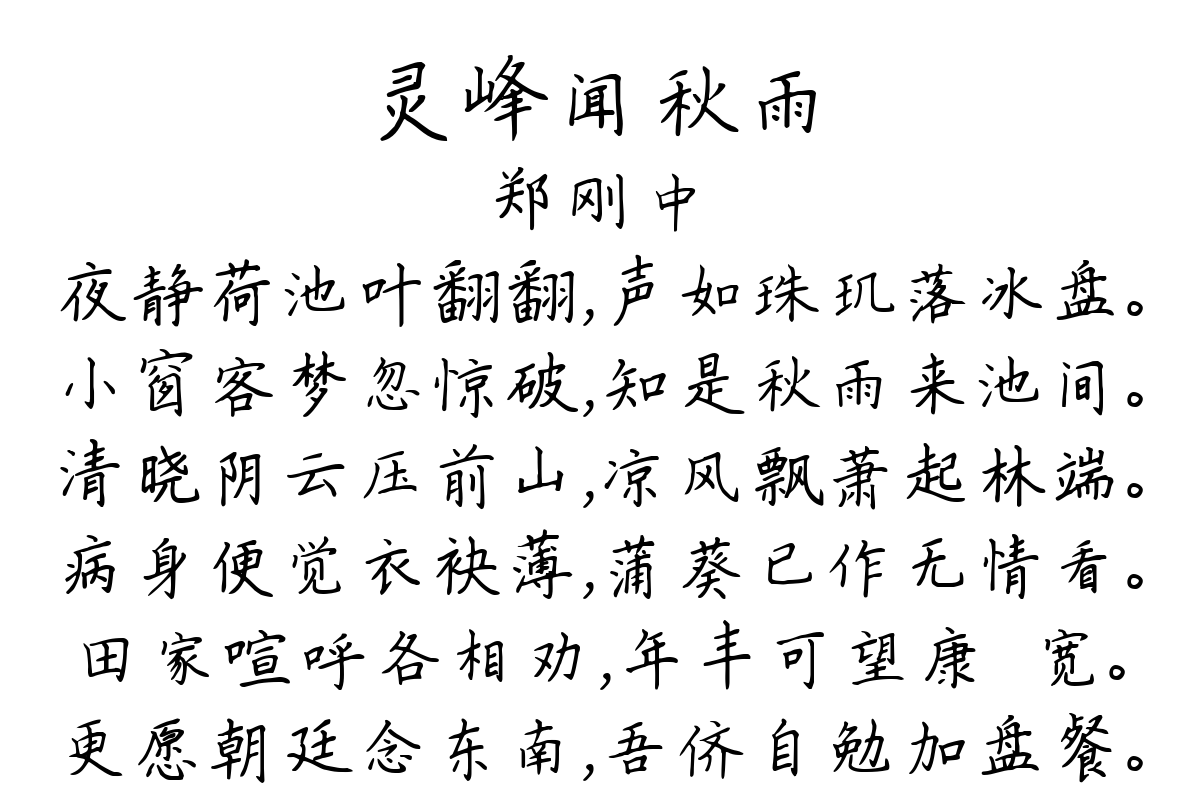 灵峰闻秋雨
郑刚中
夜静荷池叶翻翻,声如珠玑落冰盘。
小窗客梦忽惊破,知是秋雨来池间。
清晓阴云压前山,凉风飘萧起林端。
病身便觉衣袂薄,蒲葵已作无情看。
田家喧呼各相劝,年丰可望康 宽。
更愿朝廷念东南,吾侪自勉加盘餐。